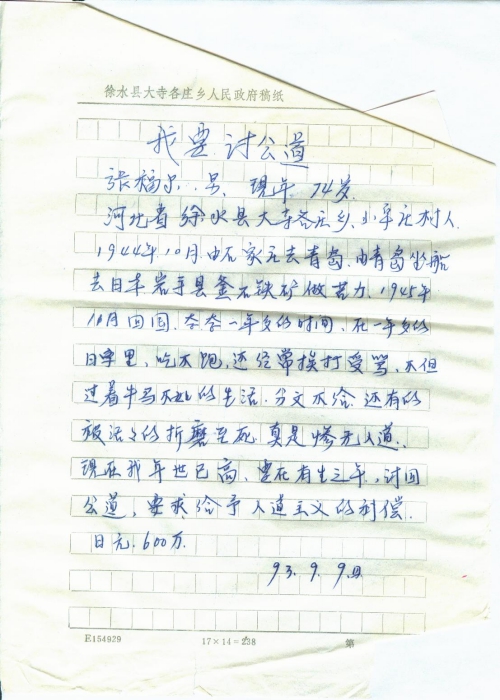 徐水县大寺各庄乡人民政府稿纸
我要讨公道
张福 男、现年 74岁
河北省徐水县大寺各庄乡、小辛庄村人
1944年10月由石家庄去青岛、由青岛坐船
去日本岩手县釜石铁矿做苦力、1945年
10月回国、一年多的时间、在一年多的
日子里、吃不饱、还经常挨打受骂、不但
过着牛马不如的生活、分文不给、还有的
被活活的折磨至死、真是惨无人道、
现在我年世已高、要在有生之年、讨回
公道、要求给予人道主义的补偿、
日元、600万
93.9.9日
E154929 17×14=238 第